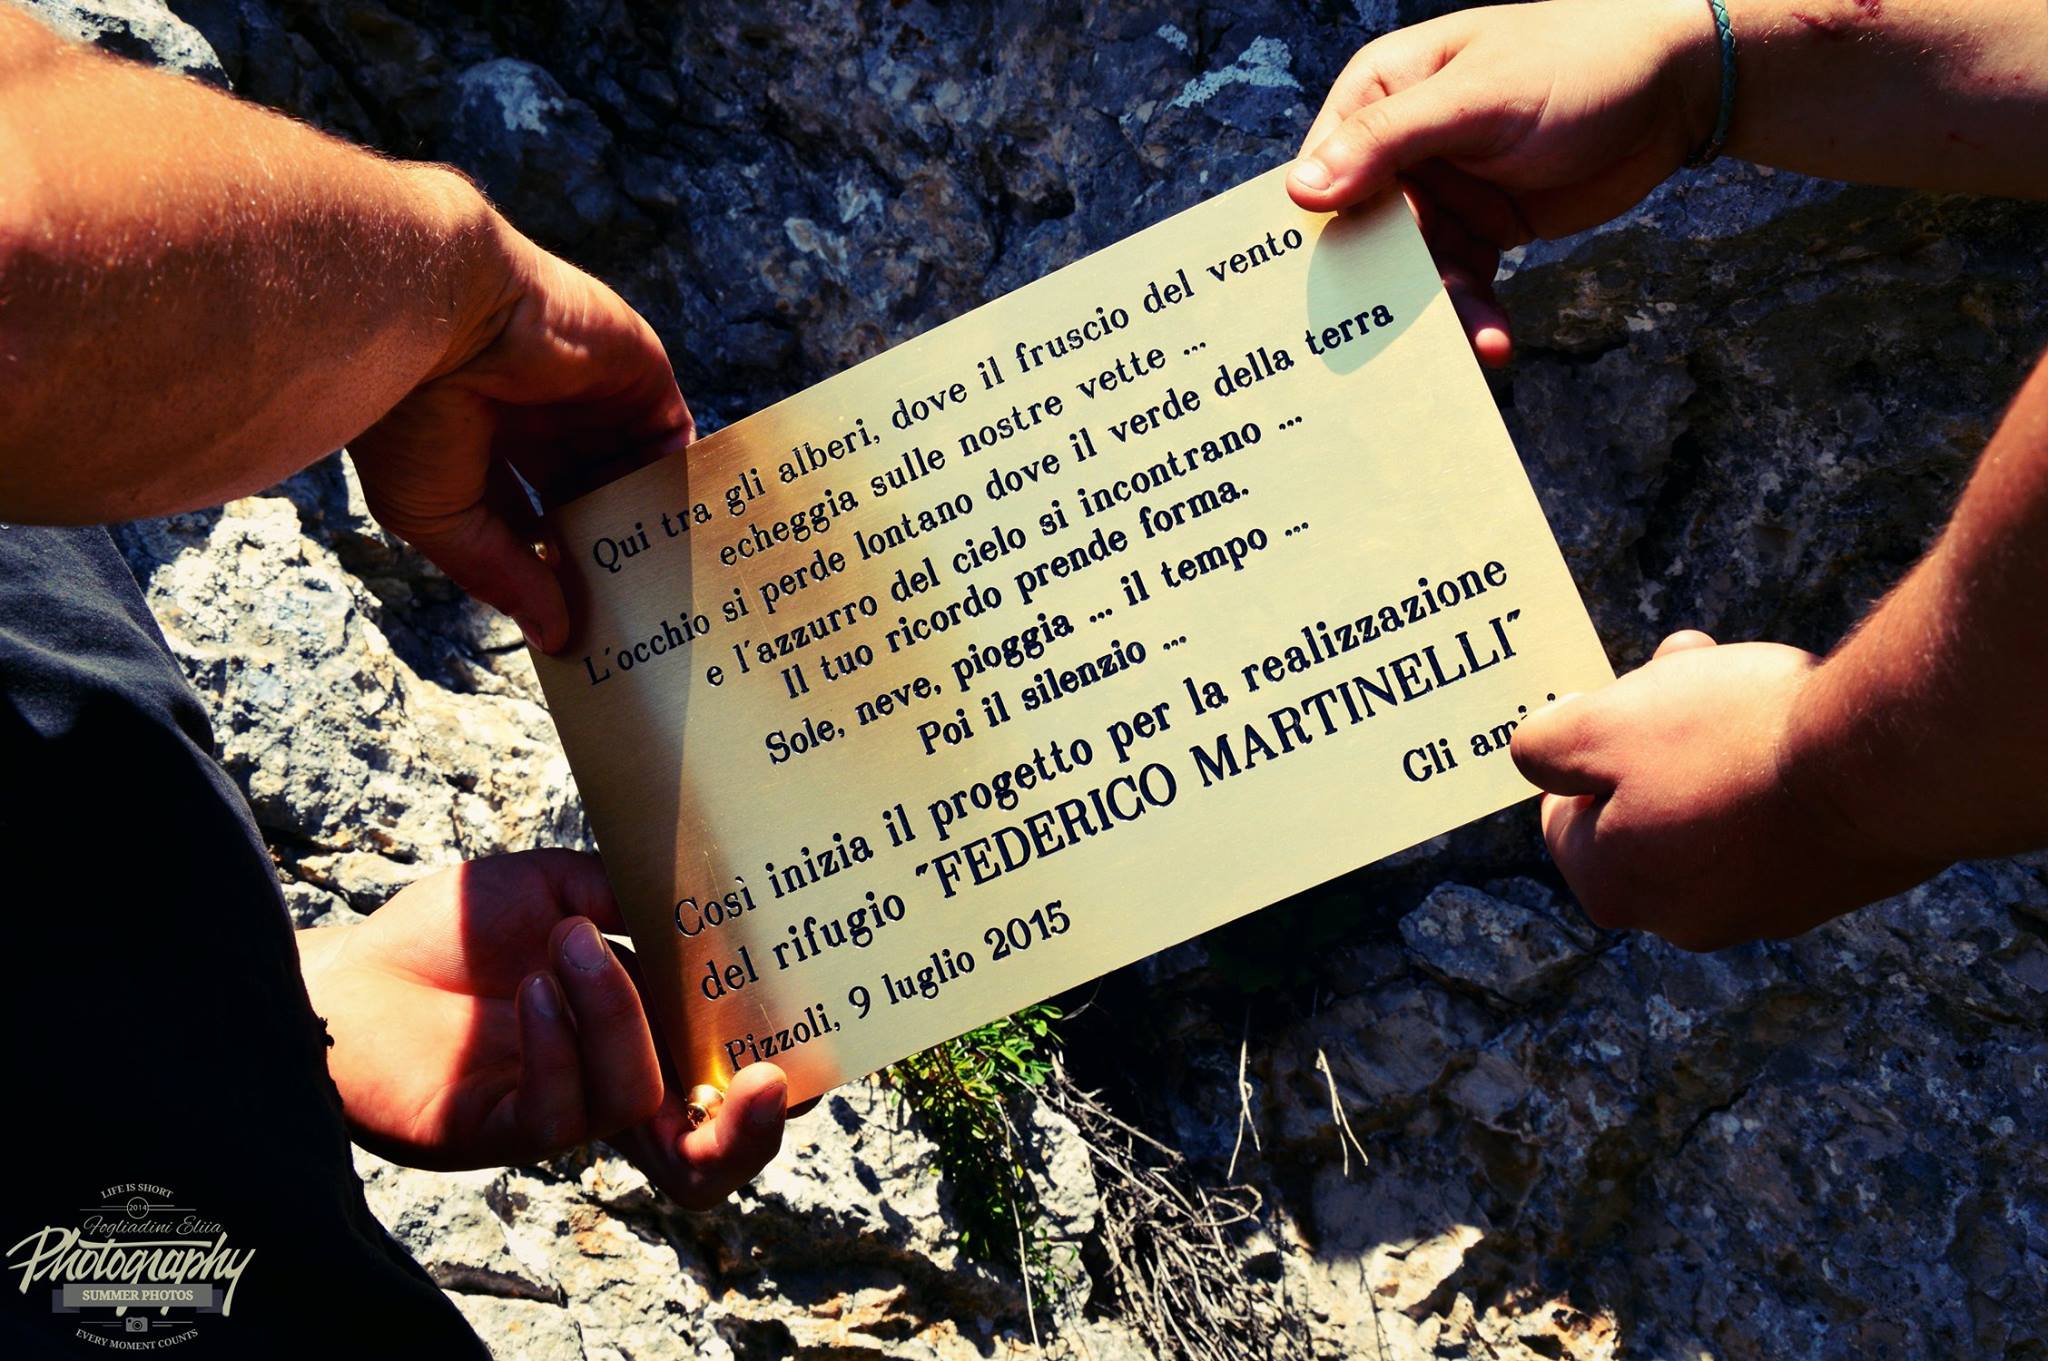 Qui tra gli alberi, dove il fruscio del vento
echeggia sulle nostre vette ...
L'occhio si perde lontano dove il verde della terra
e l'azzurro del cielo si incontrano ...
Il tuo ricordo prende forma.
Sole, neve, pioggia ... il tempo ...
Poi il silenzio ...
Così inizia il progetto per la realizzazione
del rifugio "FEDERICO MARTINELLI"
Gli
Pizzoli, 9 luglio 2015
LIFE IS SHORT
2014
Fogliadini Eliia
Photography
SUMMER PHOTOS
EVERY MOMENT COUNTS